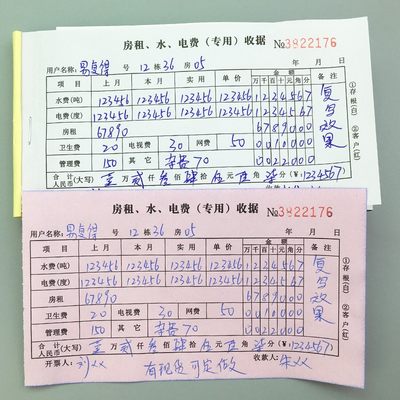 房租、水、电费(专用)收据 №3922176
用户名称: 易复得 号 12栋36 房05 年 月 日
项目 上月 本月 实用 单价 金额 备注
万千百十元角分
水费(吨) 123456 123456 123456 123456 1234567 复写效果
电费(度) 123456 123456 123456 123456 1234567
房租 67890 6789000
卫生费 20 电视费 30 网费 50 0010000
管理费 150 其它 杂费70 0022000
合计人民币(大写) 壹万贰仟叁佰肆拾伍元陆角柒分(¥:12345.67)
①存根(白) ②客户(红)
房租、水、电费(专用)收据 №3922176
用户名称: 易复得 号 12栋36 房05 年 月 日
项目 上月 本月 实用 单价 金额 备注
万千百十元角分
水费(吨) 123456 123456 123456 123456 1234567 复写效果
电费(度) 123456 123456 123456 123456 1234567
房租 67890 6789000
卫生费 20 电视费 30 网费 50 0010000
管理费 150 其它 杂费70 0022000
合计人民币(大写) 壹万贰仟叁佰肆拾伍元陆角柒分(¥:12345.67)
①存根(白) ②客户(红)
开票人: 刘XX 有现货可定做 收款人: 朱XX